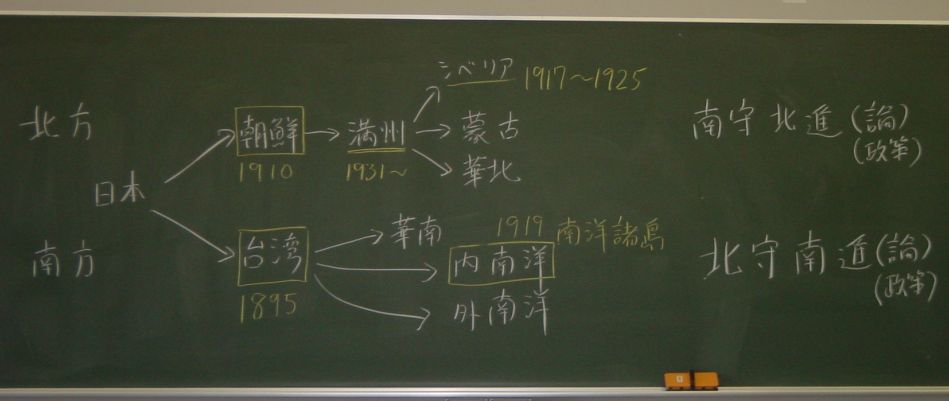 シベリア 1917～1925
北方 朝鮮 満州 蒙古 南守北進(論)
(政策)
1910 1931～ 華北
日本
華南 1919 南洋諸島
南方 台湾 内南洋 北守南進(論)
(政策)
1895 外南洋